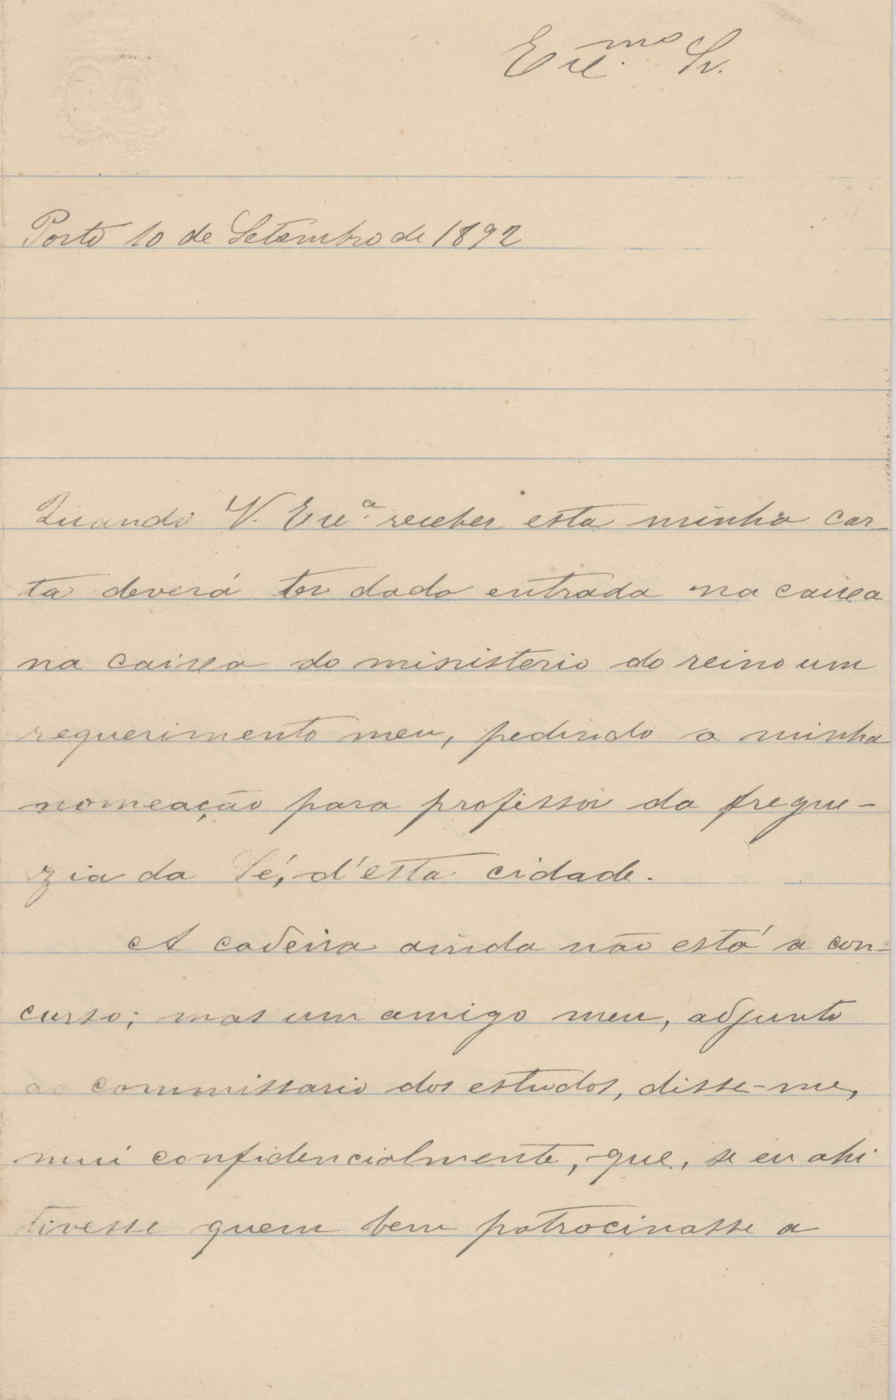 Ex.mo Sr.
Porto 10 de Setembro de 1892
Quando V. Ex.a receber esta minha car-
ta deverá ter dado entrada na caixa
na caixa do ministerio do reino um
requerimento meu, pedindo a minha
nomeação para professor da fregue-
zia da Sé, d'esta cidade.
A cadeira ainda não está a con-
curso; mas um amigo meu, adjunto
ao commissario dos estudos, disse-me,
mui confidencialmente, que, se eu ahi
tivesse quem bem patrocinasse a